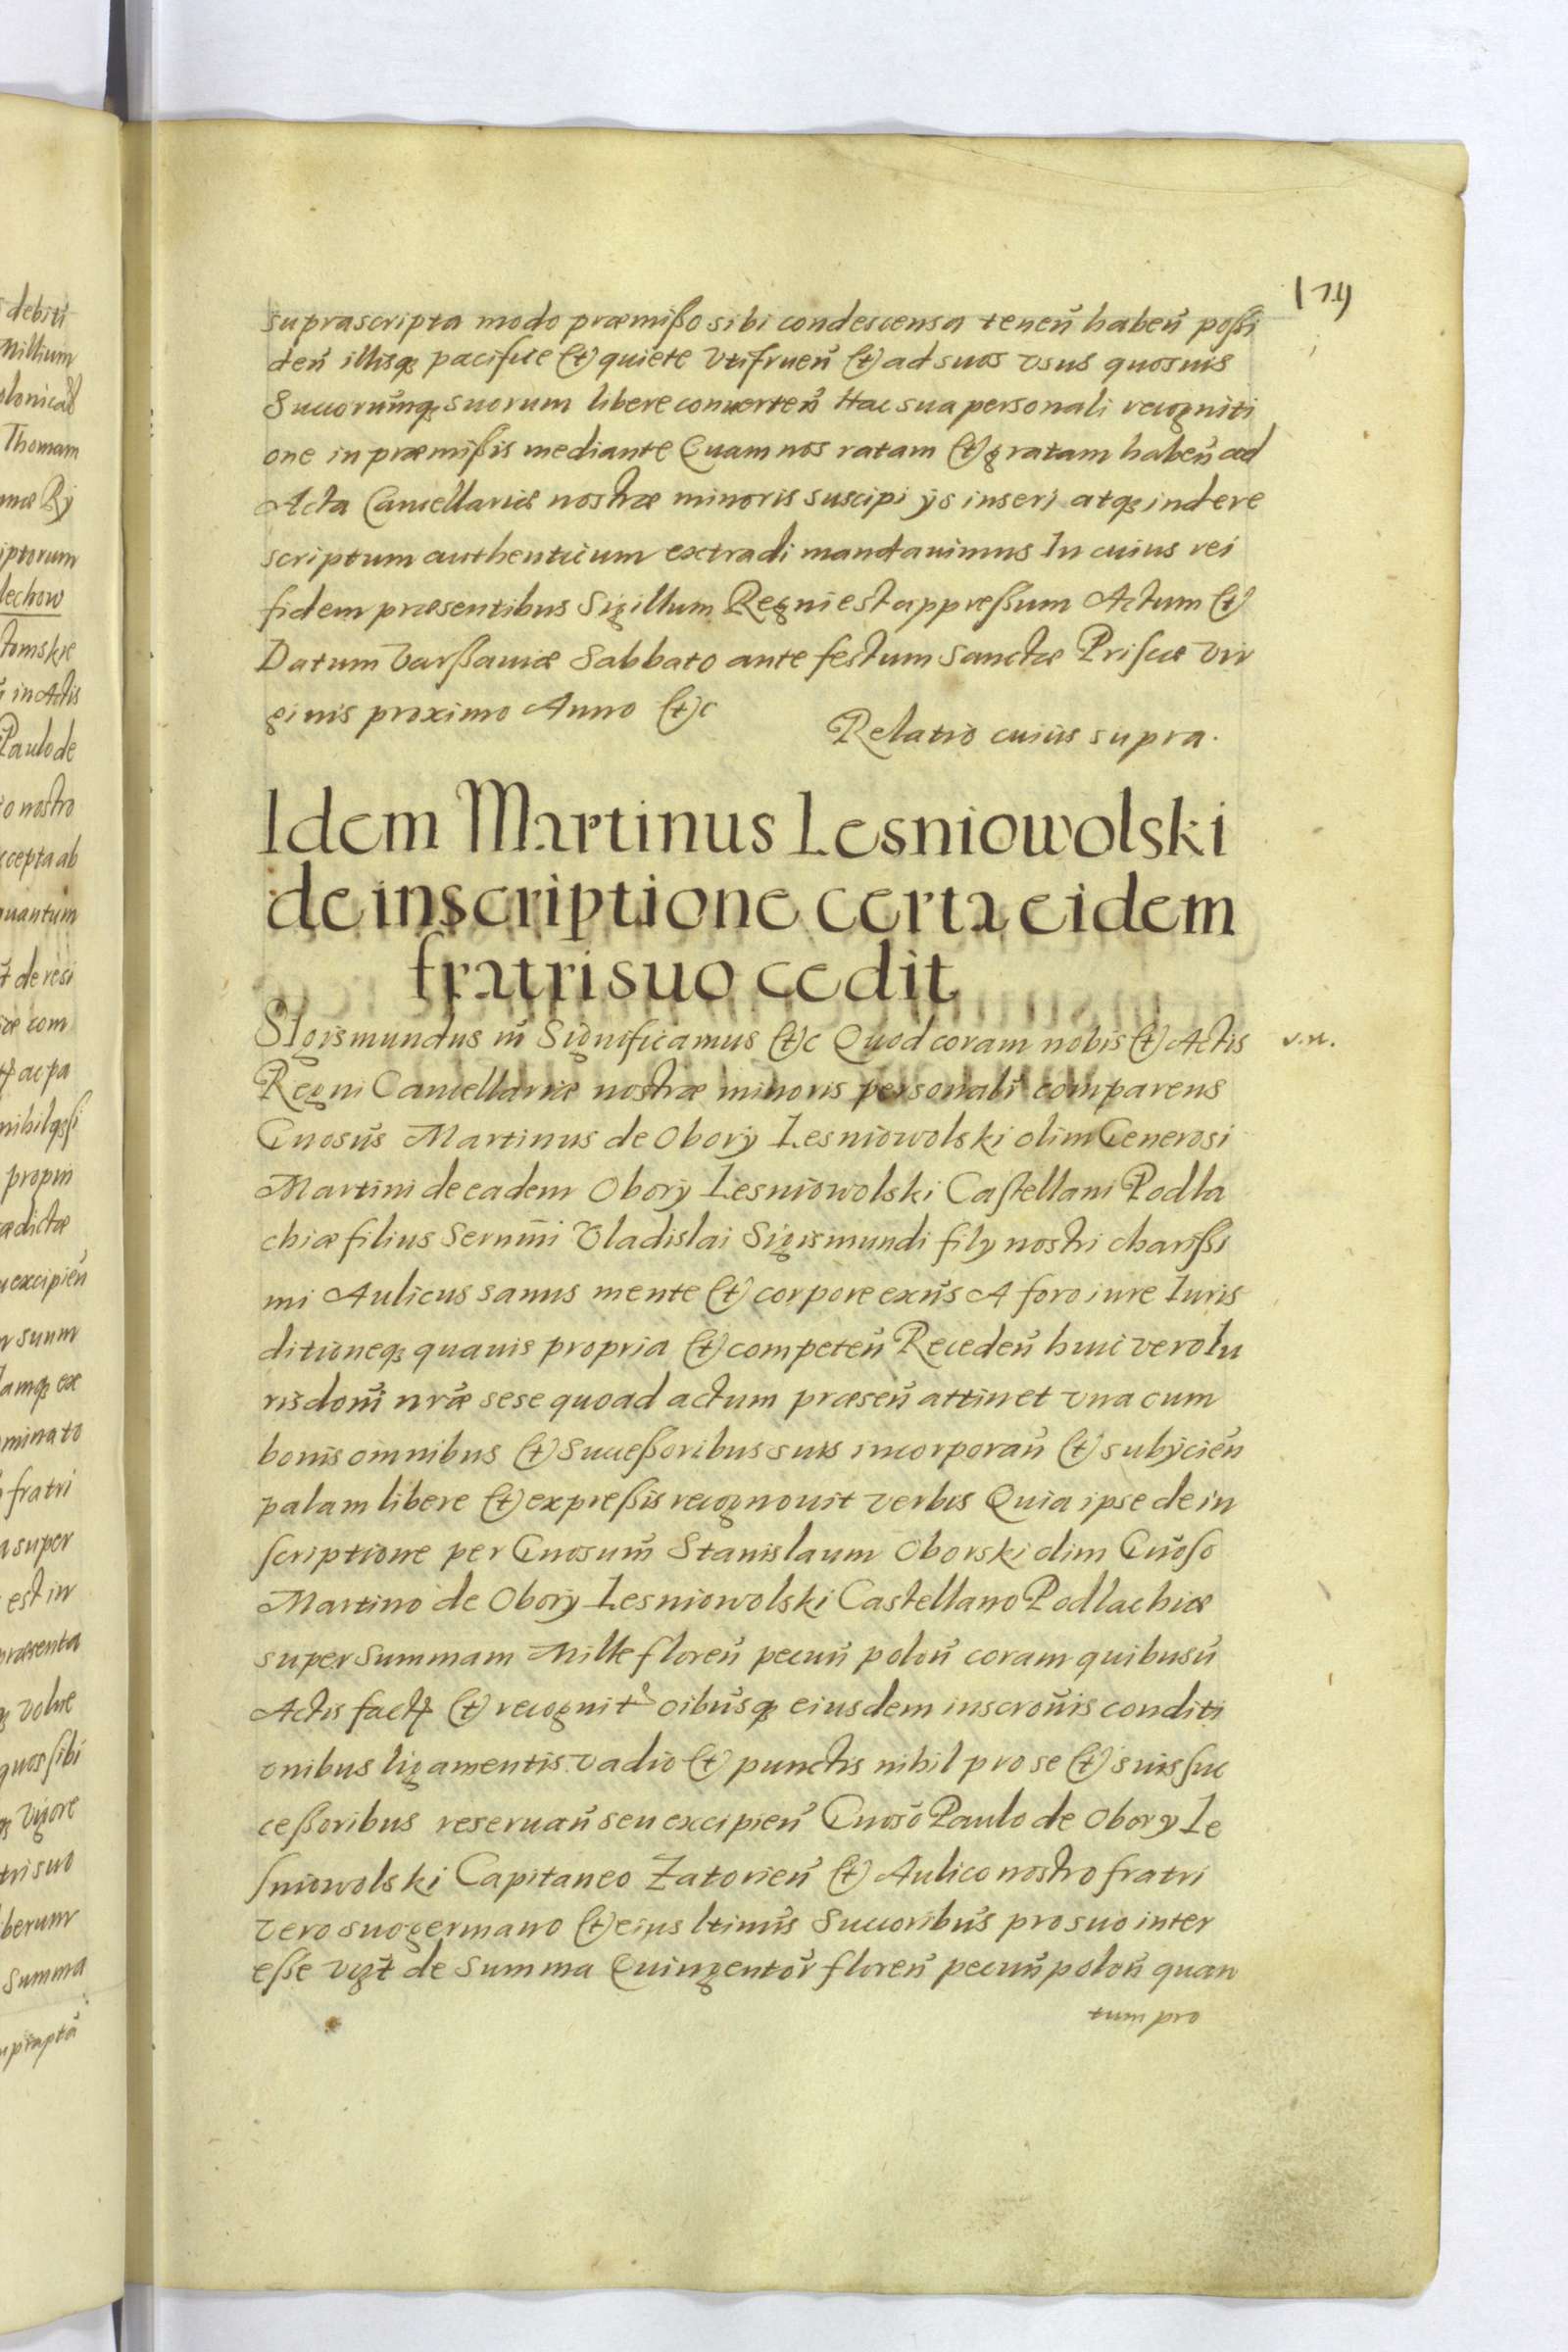 179
suprascripta modo præmißo sibi condescensa teneñ habeñ poßi
deñ illisq; pacifice (et) quiete Vtifrueñ (et) ad suos vsus quosuis
Succorum̃q; suorum libere conuerteñ Hac sua personali recogniti
one in præmißis mediante Quam nos ratam (et) gratam habeñ ad
Acta Cancellariæ nostræ minoris suscipi ÿs inseri atq; inde re
scriptum authenticum extradi mandauimus In cuius rei
fidem præsentibus Sigillum Regni est appreßum Actum (et)
Datum Varßauiæ Sabbato ante festum Sanctæ Priscæ Vir
ginis proximo Anno (et)c
Relatio cuius supra.
Idem Martinus Lesniowolski
de inscriptione certa eidem
fratri suo cedit
SIgismundus m̃ Significamus (et)c Quod coram nobis (et) Actis
v.n.
Regni Cancellariæ nostræ minoris personalĩ comparens
Gnosũs Martinus de Oborÿ Lesniowolski olim Generosi
Martini de eadem Oborÿ Lesniowolski Castellani Podla
chiæ filius Serm̃i Vladislai Sigismundi filÿ nostri charißi
mi Aulicus sanus mente (et) corpore exñs A foro iure Iuris
ditioneq; quauis propria (et) competeñ Recedeñ huic vero Iu
risdom̃ nræ̃ sese quoad actum præseñ attinet vna cum
bonis omnibus (et) Succeßoribus suis incorporañ (et) subÿcieñ
palam libere (et) expreßis recognouit verbis Quia ipse de in
scriptione per Gnosum̃ Stanislaum Oborski olim Gnõso
Martino de Oborÿ Lesniowolski Castellano Podlachiæ
super Summam Mille floreñ pecuñ poloñ coram quibusũ
Actis fact (et) recognit oibũsq; eiusdem inscroũis conditi
onibus ligamentis vadio (et) punctis nihil pro se (et) suis suc
ceßoribus reseruañ seu excipieñ Gnosõ Paulo de Obory Le
sniowolski Capitaneo Zatorieñ (et) Aulico nostro fratri
vero suo germano (et) eius ltimĩs Succoribũs pro suo inter
esse vizt̃ de Summa Quingentor̃ floreñ pecuñ poloñ quan
tum pro